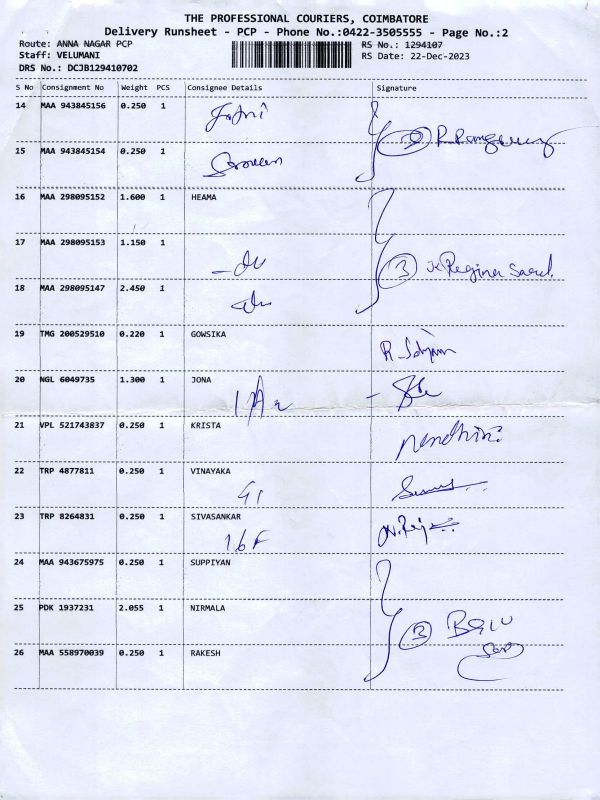 THE PROFESSIONAL COURIERS, COIMBATORE
Delivery Runsheet - PCP - Phone No.:0422-3505555 - Page No.:2
Route: ANNA NAGAR PCP
RS No.: 1294107
Staff: VELUMANI
RS Date: 22-Dec-2023
DRS No.: DCJB129410702
S No Consignment No Weight PCS Consignee Details Signature
14 MAA 943845156 0.250 1
②
15 MAA 943845154 0.250 1
16 MAA 298095152 1.600 1 HEAMA
17 MAA 298095153 1.150 1
③ Regina
18 MAA 298095147 2.450 1
19 TMG 200529510 0.220 1 GOWSIKA
20 NGL 6049735 1.300 1 JONA
21 VPL 521743837 0.250 1 KRISTA nandhini
22 TRP 4877811 0.250 1 VINAYAKA
23 TRP 8264831 0.250 1 SIVASANKAR
16F
24 MAA 943675975 0.250 1 SUPPIYAN
25 PDK 1937231 2.055 1 NIRMALA
③
26 MAA 558970039 0.250 1 RAKESH